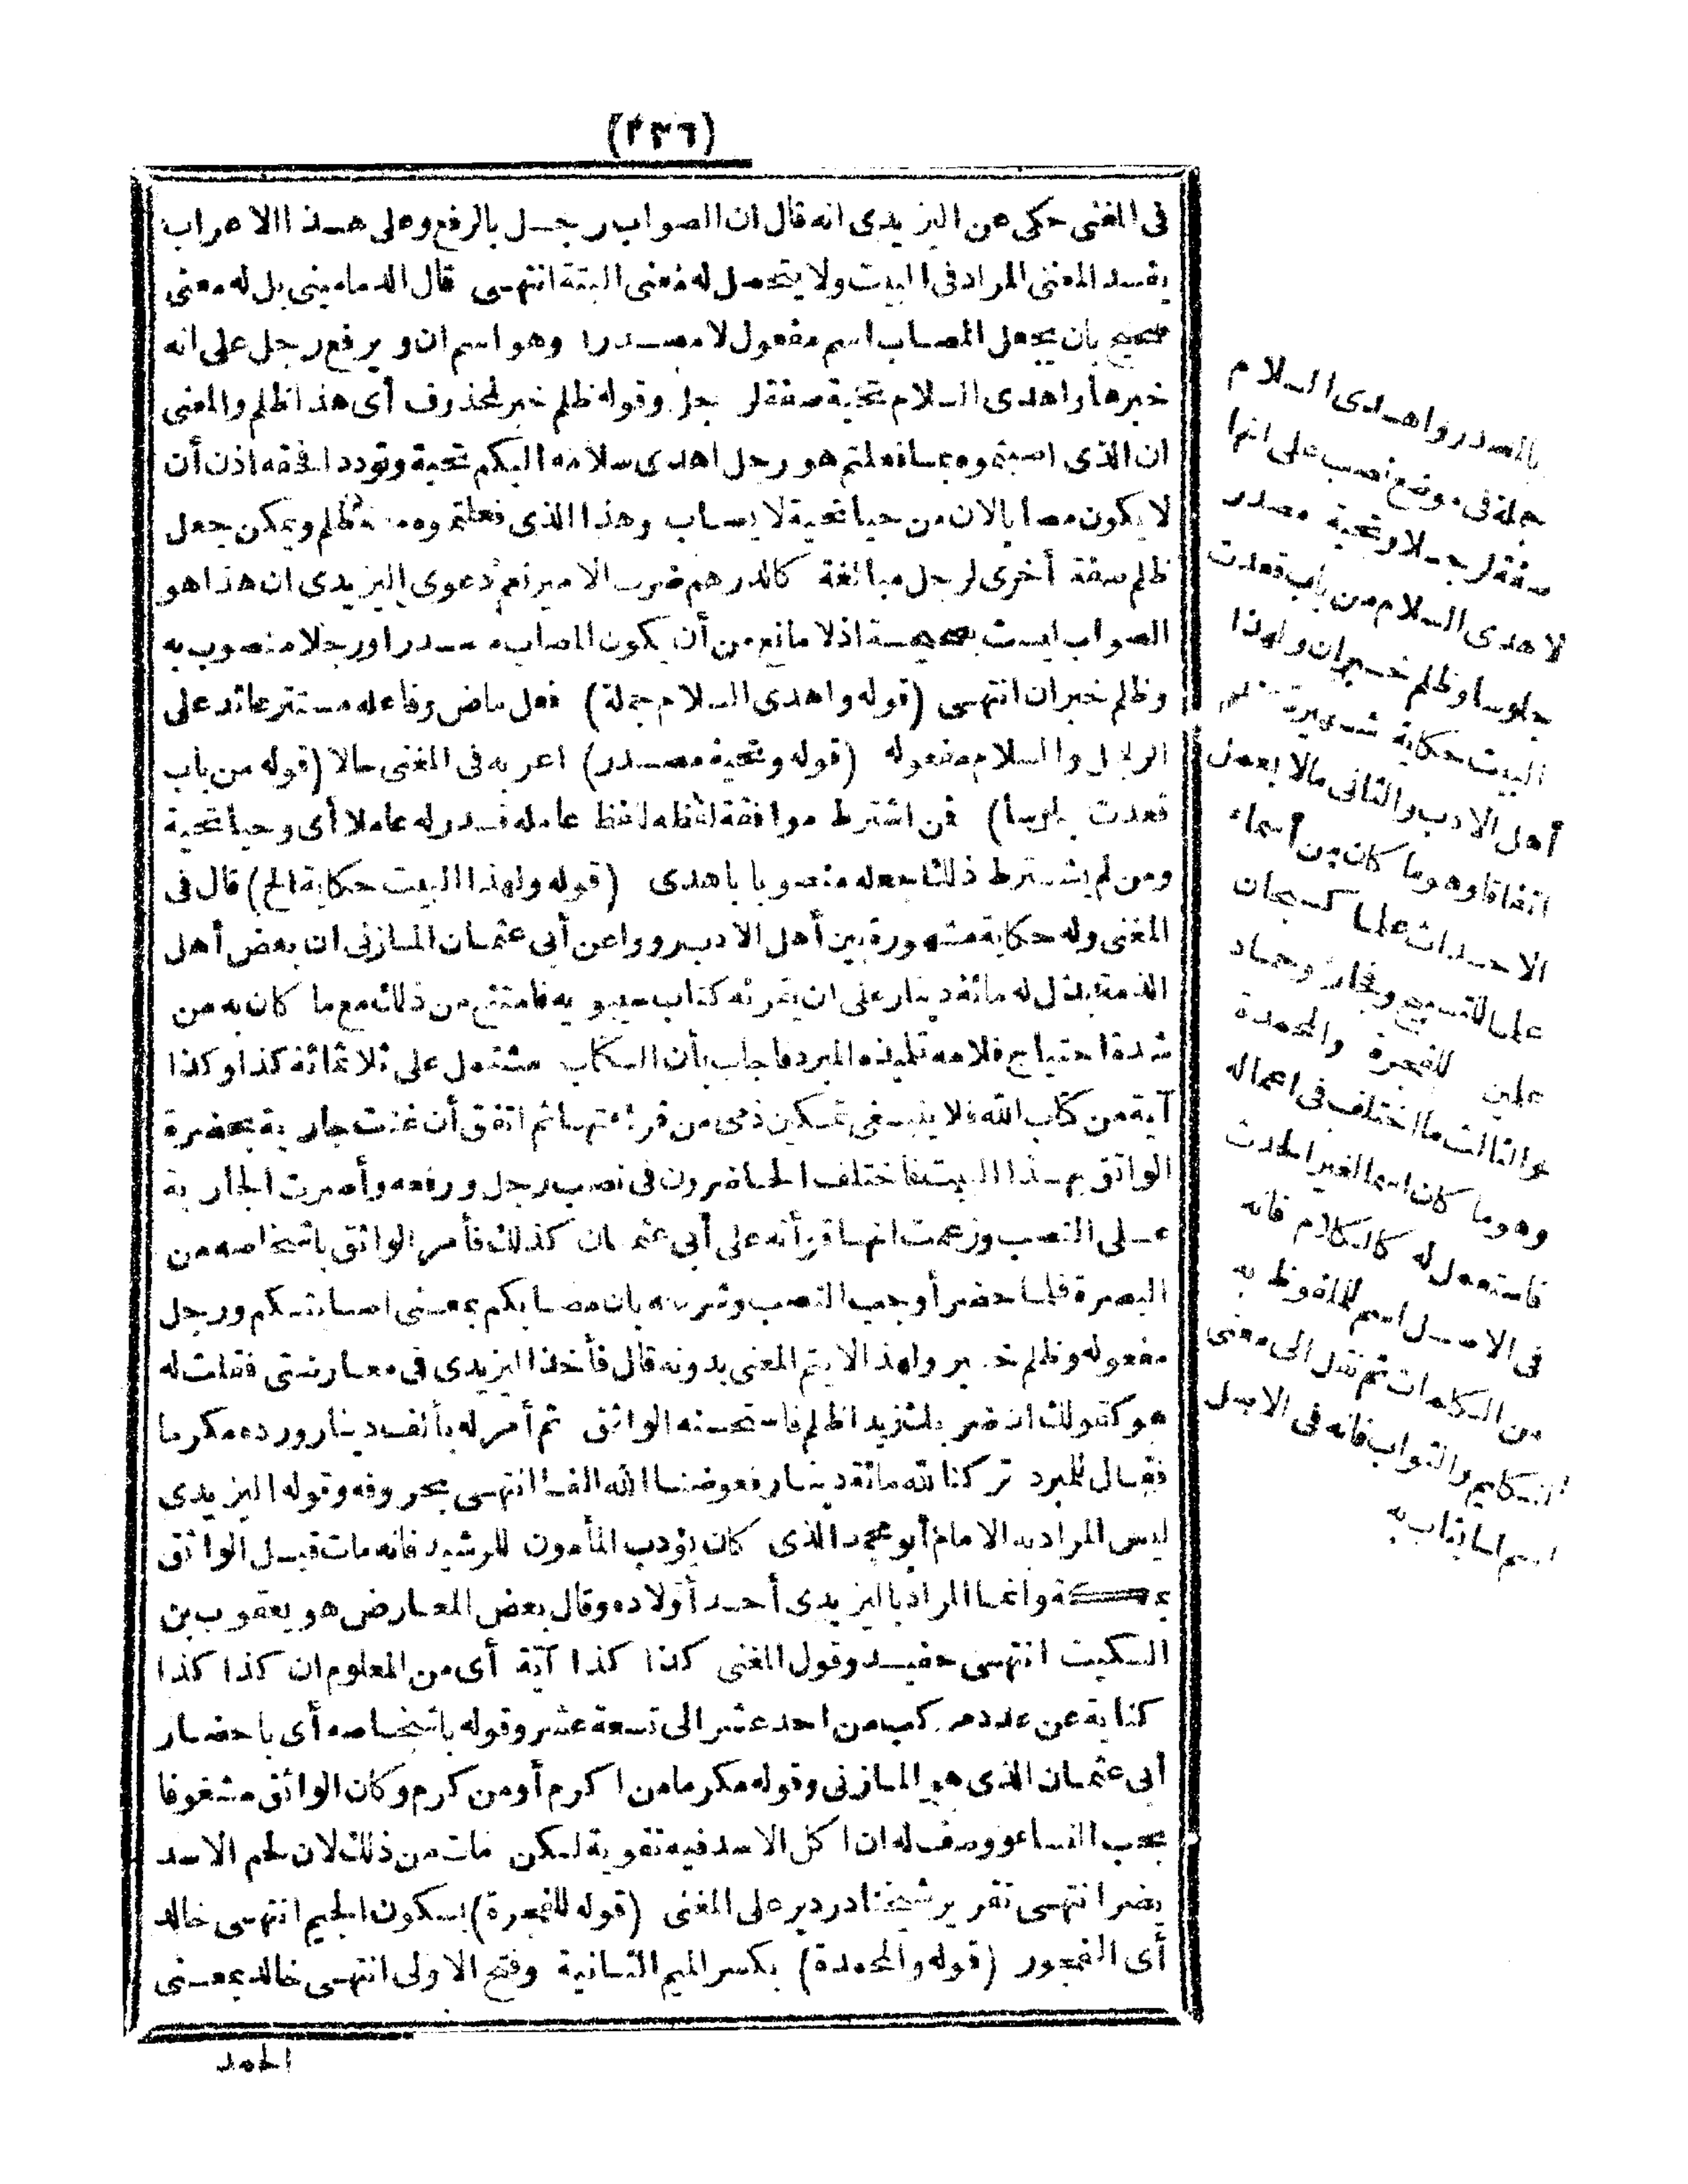 (٢٣٦)
فى المغنى حكى عن اليزيدى انه قال ان الصواب رجل بالرفع وعلى هذا الاعراب
يفسد المعنى المراد فى البيت ولا يتحصل له معنى البتة انتهى قال الدمامينى بل له معنى
صحيح بأن يجعل المصاب اسم مفعول لا مصدرا وهو اسم ان ويرفع رجل على انه
خبرها واهدى السلام تحية صفة لرجل وقوله ظلم خبر لمحذوف أى هذا ظلم والمعنى
ان الذى اصبتموه بما فعلتم هو رجل اهدى سلامه اليكم تحية وتوددا فحقه اذن أن
لا يكون مصابا لان من حيا تحية لا يصاب وهذا الذى فعلتموه به ظلم ويمكن جعل
ظلم صفة أخرى لرجل مبالغة كالدرهم ضرب الامير نعم دعوى اليزيدى ان هذا هو
الصواب ليست بصحيحة اذ لا مانع من أن يكون المصاب مصدرا ورجلا منصوب به
وظلم خبر ان انتهى (قوله واهدى السلام جملة) فعل ماض وفاعله مستتر عائد على
الرجل والسلام مفعوله (قوله وتحية مصدر) اعربه فى المغنى حالا (قوله من باب
قعدت جلوسا) فمن اشترط موافقة لفظه لفظ عامله قدر له عاملا أى وحيا تحية
ومن لم يشترط ذلك جعله منصوبا باهدى (قوله ولهذا البيت حكاية الخ) قال فى
المغنى وله حكاية مشهورة بين أهل الادب رووا عن أبى عثمان المازنى ان بعض أهل
الذمة بذل له مائة دينار على ان يقرئه كتاب سيبويه فامتنع من ذلك مع ما كان به من
شدة احتياج فلامه تلميذه المبرد فاجاب بأن الكتاب مشتمل على ثلاثمائة كذا وكذا
آية من كتاب الله فلا ينبغى تمكين ذمى من قراءتها ثم اتفق أن غنت جارية بحضرة
الواثق بهذا البيت فاختلف الحاضرون فى نصب رجل ورفعه وأصرت الجارية
على النصب وزعمت انها قرأته على أبى عثمان كذلك فأمر الواثق باشخاصه من
البصرة فلما حضر أوجب النصب وشرحه بان مصابكم بمعنى اصابتكم ورجل
مفعوله وظلم خبر ولهذا لا يتم المعنى بدونه قال فأخذ اليزيدى فى معارضتى فقلت له
هو كقولك ان ضربك زيدا ظلم فاستحسنه الواثق ثم أمر له بألف دينار ورده مكرما
فقال للمبرد تركنا لله مائة دينار فعوضنا الله الفا انتهى بحروفه وقوله اليزيدى
ليس المراد به الامام أبو محمد الذى كان يؤدب المأمون للرشيد فانه مات قبل الواثق
بمكة وانما المراد باليزيدى أحد أولاده وقال بعض المعارض هو يعقوب بن
السكيت انتهى حفيد وقول المغنى كذا كذا آية أى من المعلوم ان كذا كذا
كناية عن عدد مركب من احد عشر الى تسعة عشر وقوله باشخاصه أى باحضار
أبى عثمان الذى هو المازنى وقوله مكرما من اكرم أو من كرم وكان الواثق مشغوفا
بحب النساء ووصف له ان اكل الاسد فيه تقوية لكن مات من ذلك لان لحم الاسد
يضر انتهى تقرير شيخنا دردير على المغنى (قوله للفجرة) بسكون الجيم انتهى خالد
أى الفجور (قوله والمحمدة) بكسر الميم الثانية وفتح الاولى انتهى خالد بمعنى
الحمد
بالمصدر واهدى السلام
جملة فى موضع نصب على انها
صفة لرجلا وتحية مصدر
لاهدى السلام من باب قعدت
جلوسا وظلم خبر ان ولهذا
البيت حكاية شهيرة عند
أهل الادب والثانى ما لا يعمل
اتفاقا وهو ما كان من أسماء
الاحداث علما كسبحان
علما للتسبيح وفجار وحماد
علمين للفجرة والمحمدة
والثالث ما اختلف فى اعماله
وهو ما كان اسما لغير الحدث
فاستعمل له كالكلام فانه
فى الاصل اسم للملفوظ به
من الكلمات ثم نقل الى معنى
التكليم والثواب فانه فى الاصل
اسم لما يثاب به